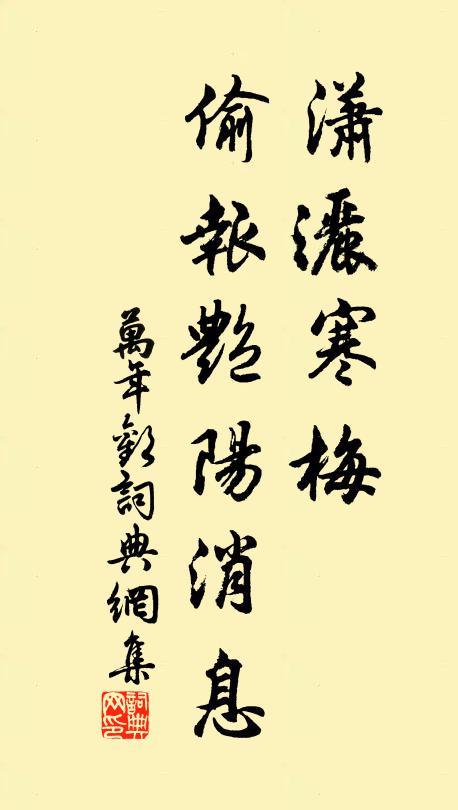 瀟灑寒梅
偷報艷陽消息
萬年歡詞典網集
詞典網印